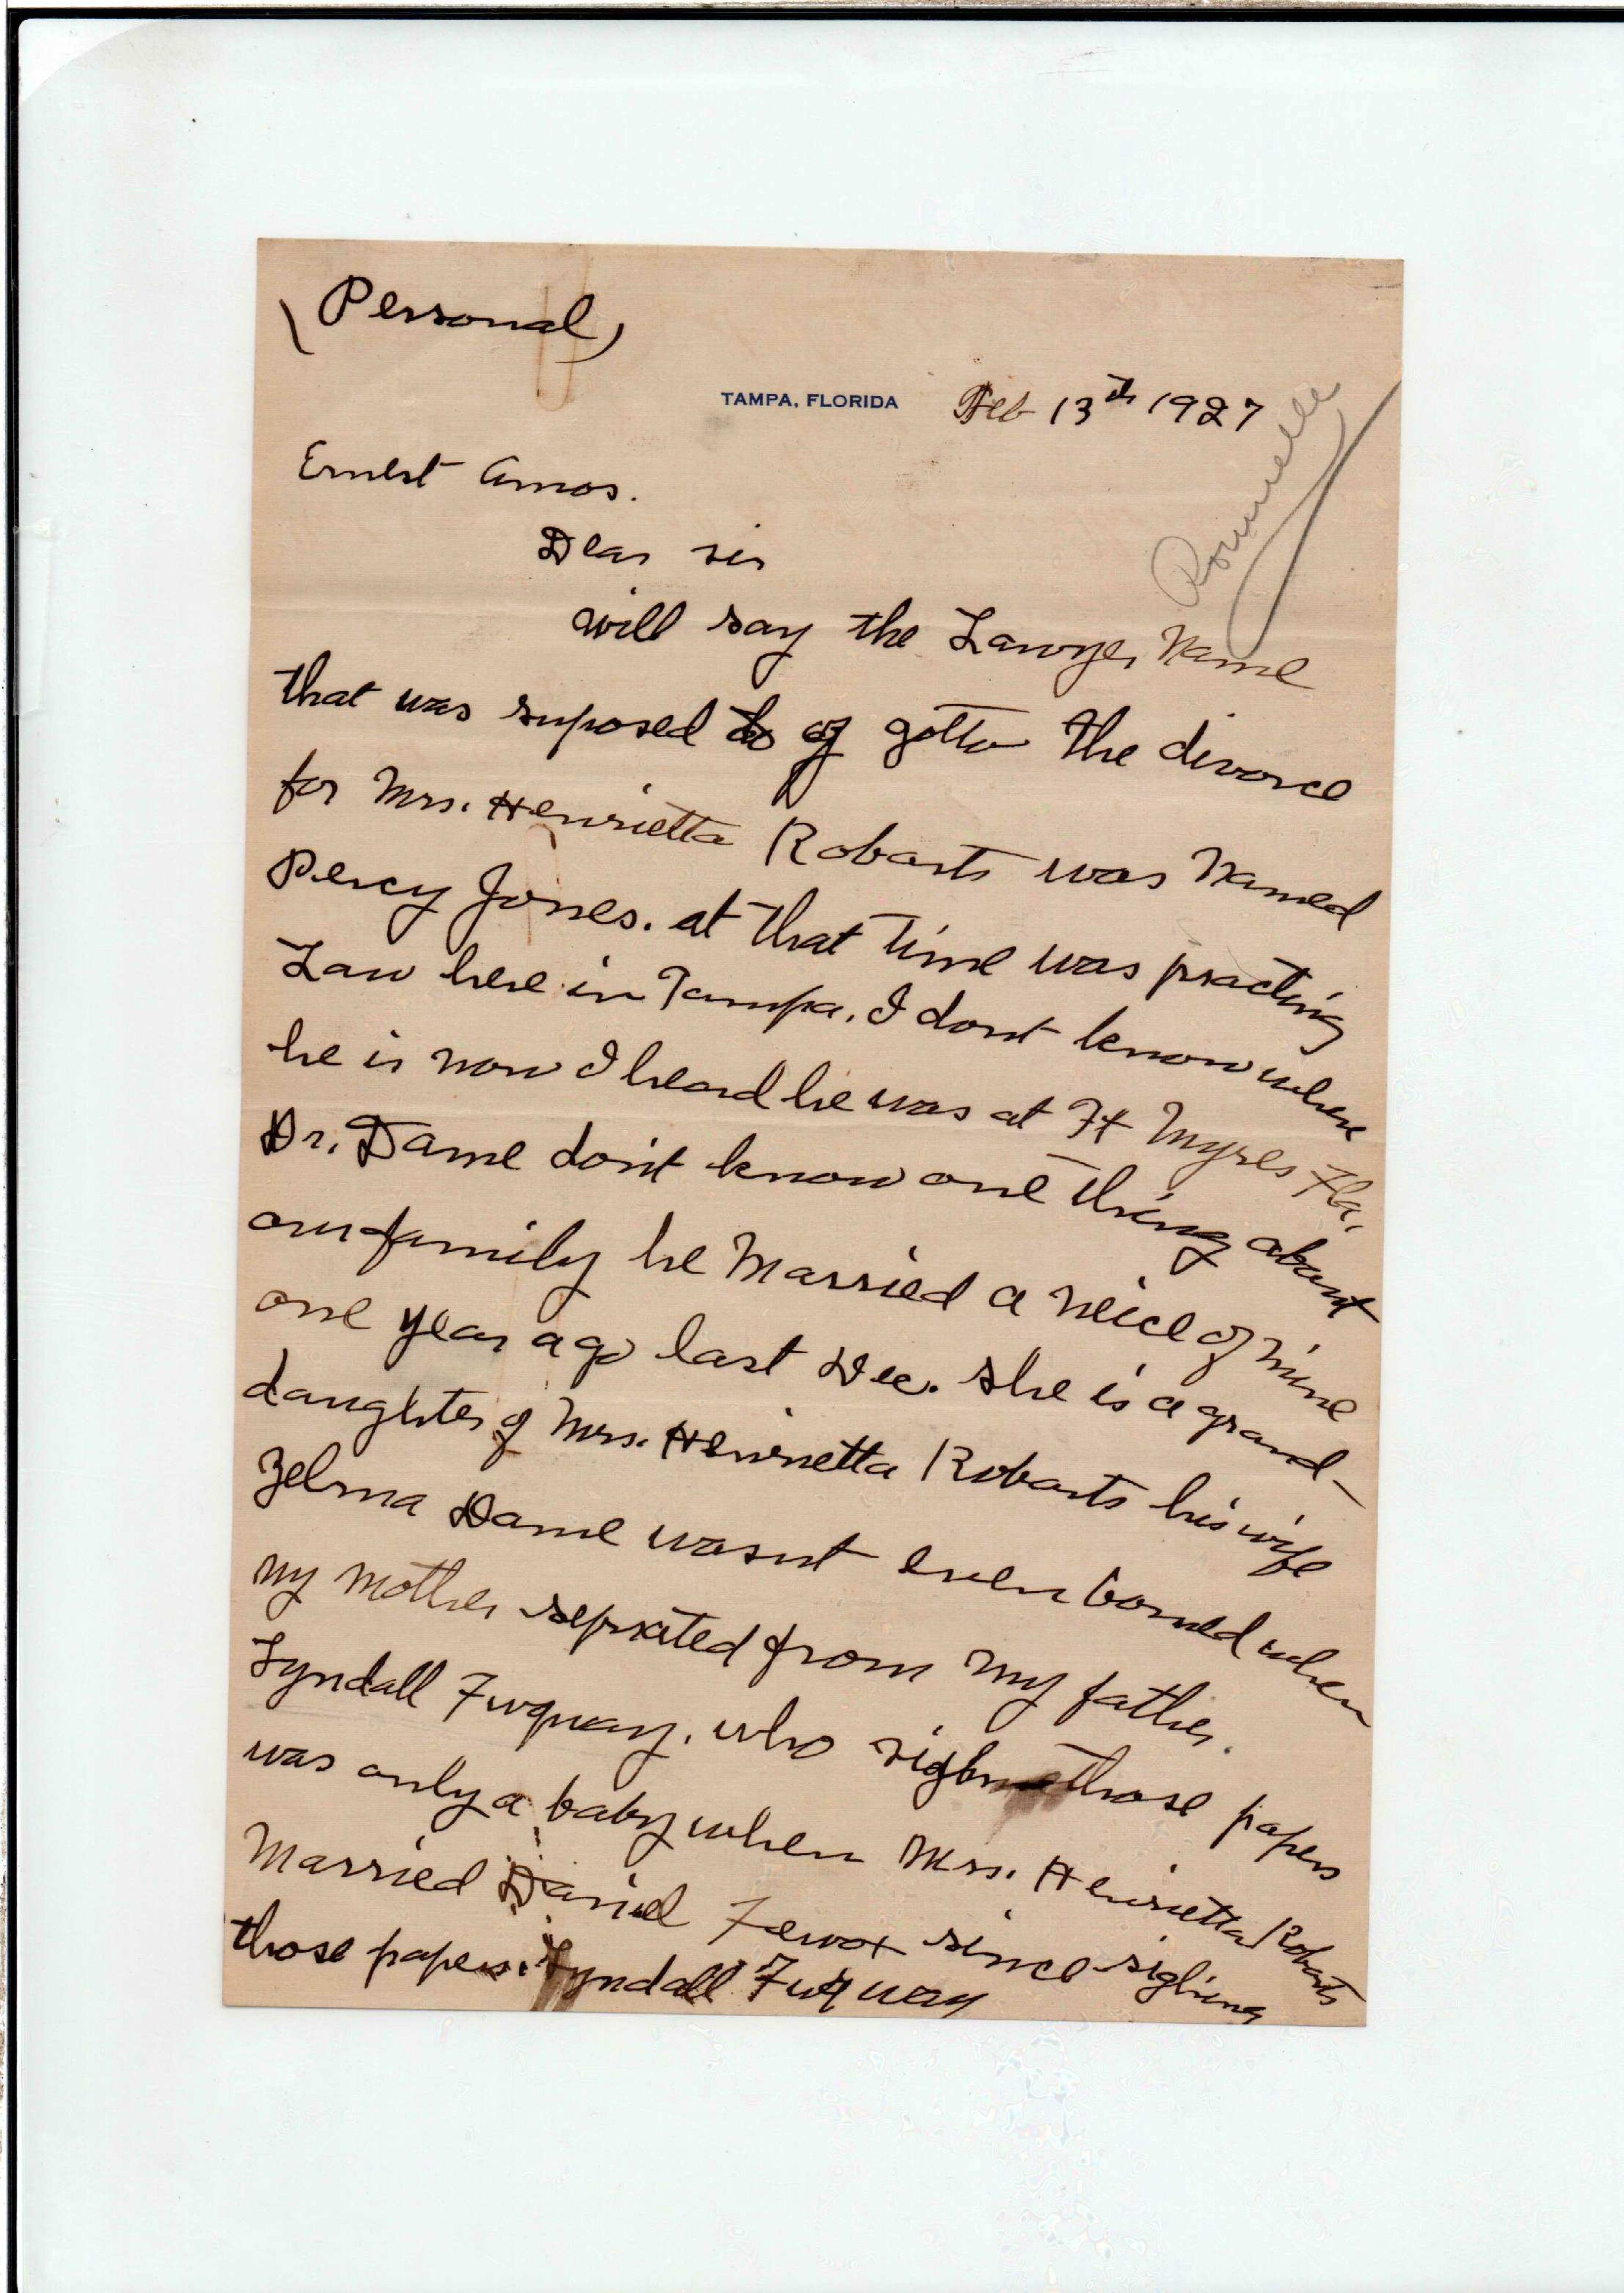 (Personal)
TAMPA, FLORIDA Feb 13th 1927
Ernest Amos.
Dear sir
will say the Lawyer Name
that was suposed to of gotto the divorce
for Mrs. Henrietta Robarts was Named
Percy Jones. at that time was practing
Law here in Tampa. I dont know where
he is now I heard he was at Ft Myres Fla.
Dr. Dame don't know one thing about
our family he Married a neice of mine
one year ago last Dec. she is a grand-
daughter of Mrs. Henrietta Robarts his wife
Zelma Dame wasnt even borned when
my Mother seprated from my father.
Lyndall Fuquay, who those papers
was only a baby when Mrs. Henrietta Robarts
Married Daniel since sighing
those papers. Lyndall Fuquay